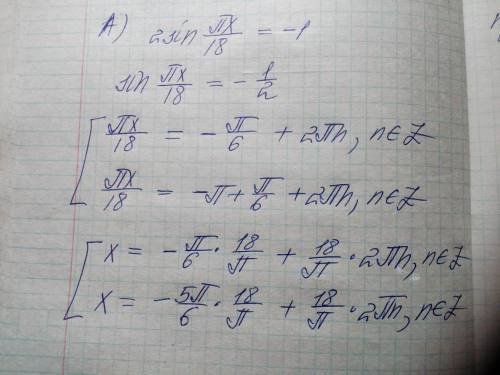 А) 2sin πx/18 = -1
sin πx/18 = - 1/2
[ πx/18 = - π/6 + 2πn, n∈Z
πx/18 = -π + π/6 + 2πn, n∈Z
[ x = - π/6 · 18/π + 18/π · 2πn, n∈Z
x = - 5π/6 · 18/π + 18/π · 2πn, n∈Z